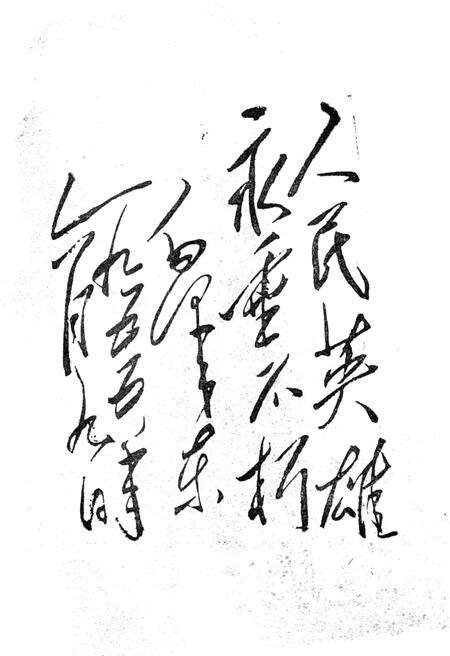 人民英雄
永垂不朽
泽东
一九五五
月九日